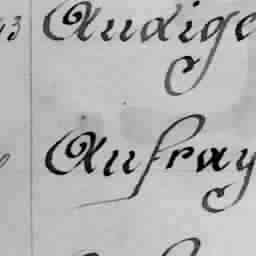 Audige
Aufray